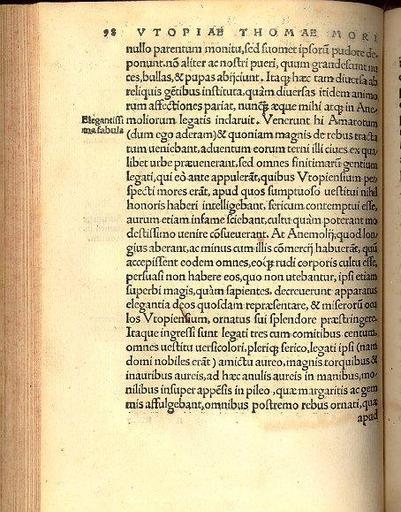 98 VTOPIAE THOMAE MORI
nullo parentum monitu, sed suomet ipsorū pudore de-
ponunt. nō aliter ac nostri pueri, quum grandescunt nu
ces, bullas, & pupas abijciunt. Itaq; hæc tam diuersa ab
reliquis gētibus instituta, quàm diuersas itidem animo
rum affectiones pariat, nunq̄ æque mihi atq; in Ane
Elegantissi
ma fabula
moliorum legatis inclaruit. Venerunt hi Amarotum
(dum ego aderam) & quoniam magnis de rebus tracta
tum ueniebant, aduentum eorum terni illi ciues ex qua
libet urbe præuenerant, sed omnes finitimarū gentium
legati, qui eò ante appulerāt, quibus Vtopiensium per
specti mores erāt, apud quos sumptuoso uestitui nihil
honoris haberi intelligebant, sericum contemptui esse,
aurum etiam infame sciebant, cultu quàm poterant mo
destissimo uenire cōsueuerant. At Anemolij, quod lon
gius aberant, ac minus cum illis cōmercij habuerāt, quū
accepissent eodem omnes, eoq; rudi corporis cultu esse,
persuasi non habere eos, quo non utebantur, ipsi etiam
superbi magis, quàm sapientes, decreuerunt apparatus
elegantia deos quosdam repræsentare, & miserorū ocu
los Vtopiensium, ornatus sui splendore præstringere.
Itaque ingressi sunt legati tres cum comitibus centum,
omnes uestitu uersicolori, pleriq; serico, legati ipsi (nam
domi nobiles erāt) amictu aureo, magnis torquibus &
inauribus aureis, ad hæc anulis aureis in manibus, mo-
nilibus insuper appēsis in pileo, quæ margaritis ac gem
mis affulgebant, omnibus postremo rebus ornati, quæ
apud